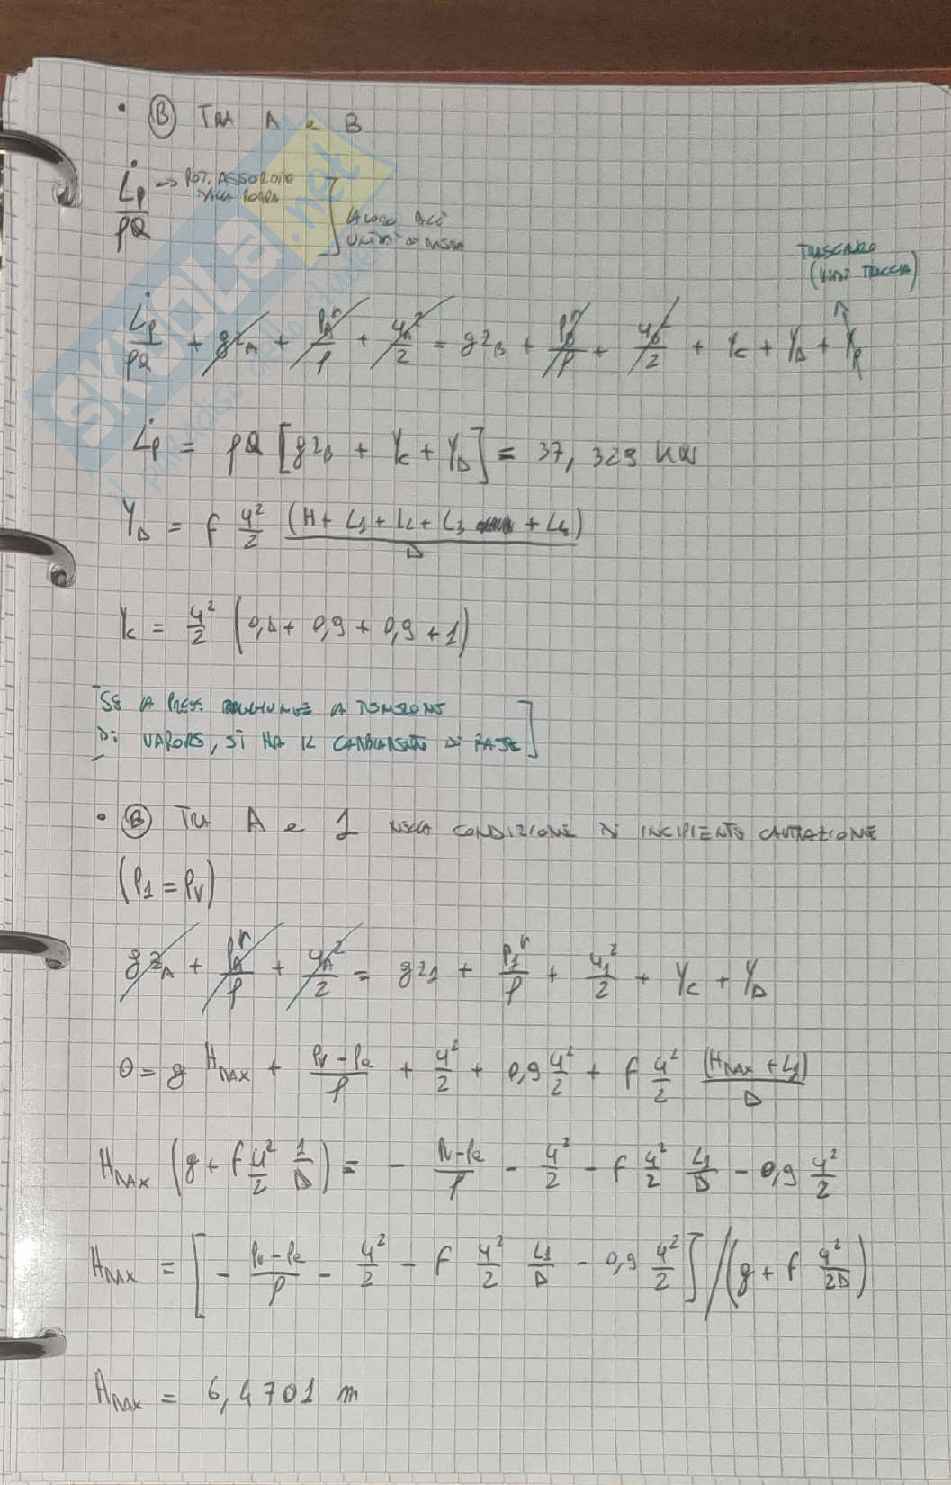 • Ⓑ TRA A e B
L̇p/ρQ → POT. ASSORBITA DALLA POMPA ] LAVORO PER UNITÀ DI MASSA
TRASCURO
(VEDI TRACCIA)
L̇p/ρQ + gzA + pAʳ/ρ + uA²/2 = gzB + pBʳ/ρ + uB²/2 + Yc + YD + Yp
L̇p = ρQ [gzB + Yc + YD] = 37,329 kW
YD = f u²/2 (H + L1 + L2 + L3 + L4)/D
Yc = u²/2 (0,8 + 0,9 + 0,9 + 1)
[SE LA PRES. RAGGIUNGE LA TENSIONE
DI VAPORE, SI HA IL CAMBIAMENTO DI FASE]
• Ⓑ TRA A e 1 NELLA CONDIZIONE DI INCIPIENTE CAVITAZIONE
(P1 = Pv)
gzA + pAʳ/ρ + uA²/2 = gz1 + p1ʳ/ρ + u1²/2 + Yc + YD
0 = g HMAX + (Pv - Pe)/ρ + u²/2 + 0,9 u²/2 + f u²/2 (HMAX + L1)/D
HMAX (g + f u²/2 1/D) = - (Pv - Pe)/ρ - u²/2 - f u²/2 L1/D - 0,9 u²/2
HMAX = [- (Pv - Pe)/ρ - u²/2 - f u²/2 L1/D - 0,9 u²/2] / (g + f u²/2D)
HMAX = 6,4701 m
SKUOLA.net